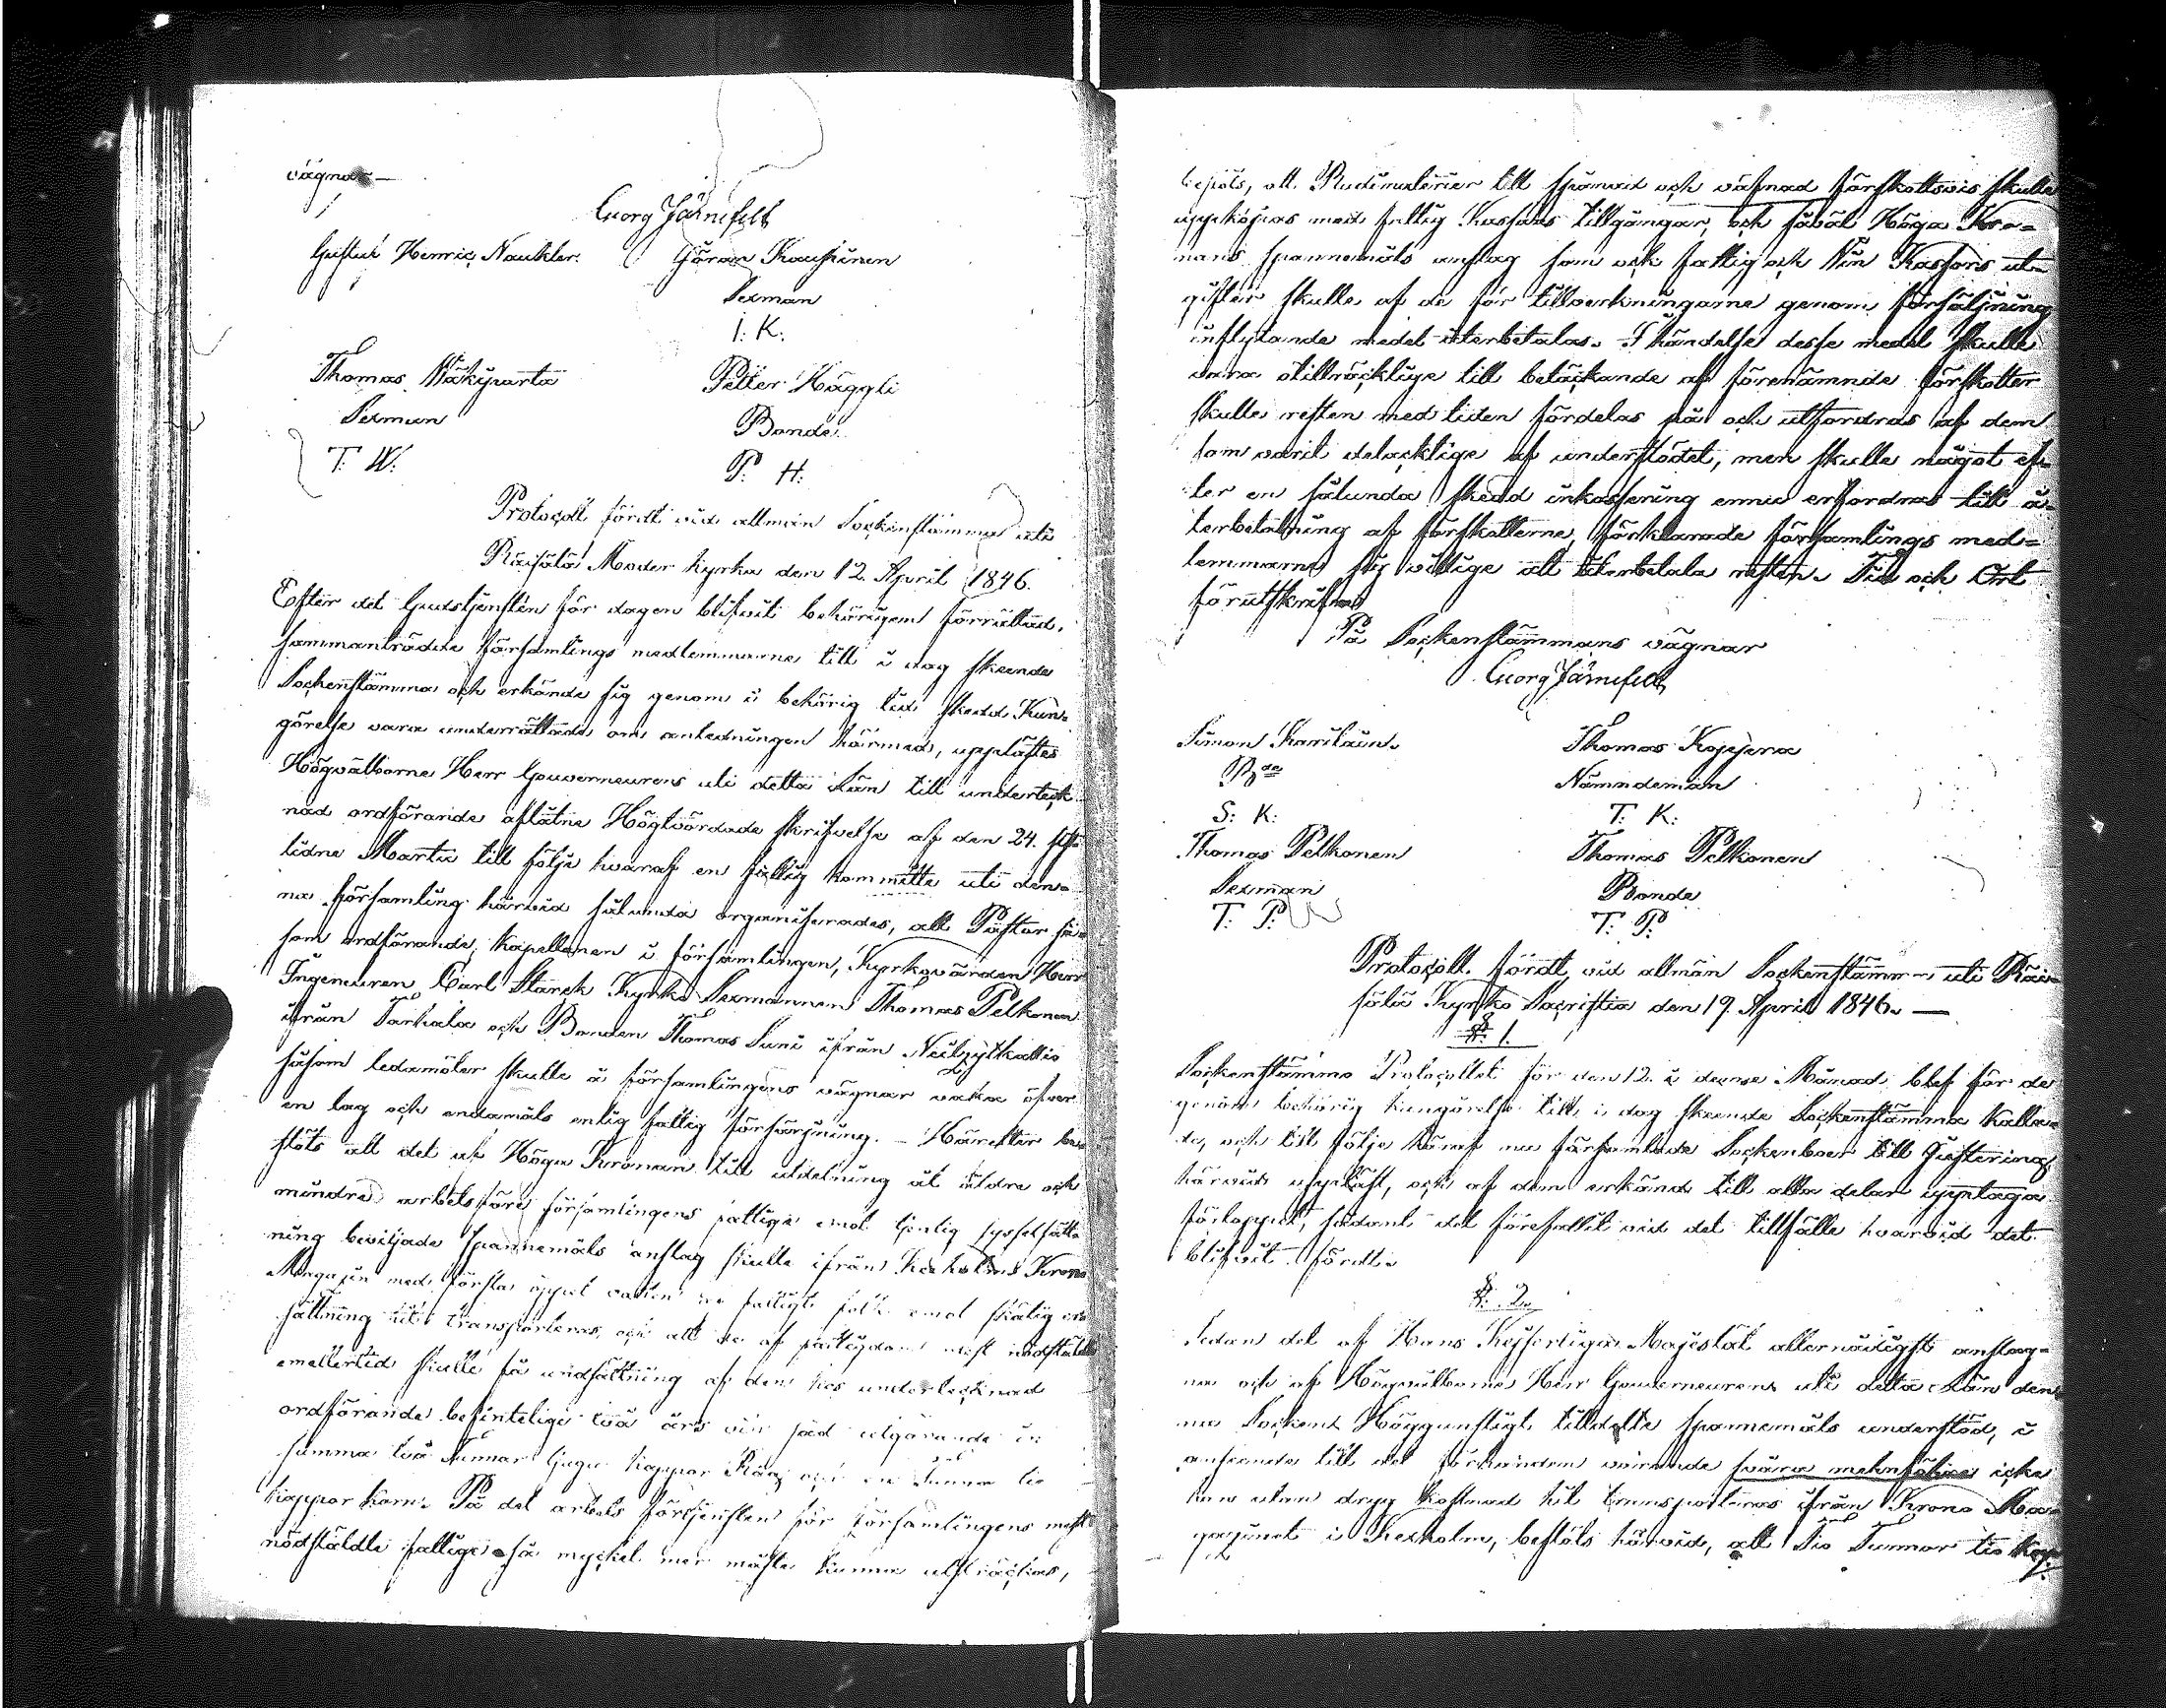 vägnar
Georg Järnefelt
Gustaf Henric Naukler. Göran Kaussinen
Sexman
I. K.
Thomas Wäkiparta Petter Häggli
Sexman Bonde
T. W. P. H.
Protocoll fördt vid allmän Sockenstämma uti
Räisälä Moder kyrka den 12. April 1846.
Efter det Gudstjensten för dagen blifvit behörigen förrättad,
sammanträdde församlings medlemmarne till i dag skeende
Sockenstämma och erkände sig genom i behörig tid skedd Kun-
görelse vara underrättade om anledningen härmed, upplästes
Högvälborne Herr Gouverneurens uti detta Län till underteck-
nad ordförande aflåtne Högtvördade skrifvelse af den 24. sist-
lidne Martii till följe hvaraf en fattig kommitte uti den-
na församling härvid sålunda organiserades, att Pastor så-
som ordförande, kapellanen i församlingen, Kyrkovärden Herr
Ingeneuren Carl Starck Kyrko Sexmannen Thomas Pelkonen
ifrån Särkisalo och Bonden Thomas Suni ifrån
såsom ledamöter skulle å församlingens vägnar vaka öfver
en lag och ändamåls enlig fattig försörjning. – Härefter be-
slöts att det af Höga Kronan till utdelning åt äldre och
mindre arbetsföre församlingens fattige emot lindrig sysselsätt-
ning beviljade spannemåls anslag skulle ifrån Kexholms Krono
Magasin med första öppet vatten af fattigt folk emot skälig er-
sättning hit transporteras, och att de af fattigdom mest nödställde
emellertid skulle få undsättning af den hos undertecknad
ordförande befintelige två års säd utgörande in
summa två Tunnor tjugu kappor Råg och en Tunna tio
kappor korn. På det arbets förtjensten för församlingens mest
nödstäldte fattige så myckel mer måtte kunna utsträckas,
beslöts, att Rudimaterier till spånad och väfnad förskottsvis skulle
uppköpas med fattig Kassans tillgångar, och såväl Höga Kro-
nans spannemåls anslag som och fattig och Län Kassans ut-
gifter skulle af de för tillverkningarne genom försäljning
inflytande medel återbetalas. I händelse desse medel skulle
vara otillräcklige till betäckande af förenämnde förskotter
skulle resten med tiden fördelas på och utfordras af dem
som varit delacktige af understödet, men skulle något ef-
ter en sålunda skedd inkassering ennu erfordras till å-
terbetalning af förskotterne, förklarade församlings med-
lemmarne sig villige att återbetala resten. Tid och Ort
förutskrifne
På Sockenstämmans vägnar
Georg Järnefelt
Simon Karilain. Thomas Kopjera
Bde Nämndeman
S. K. T. K.
Thomas Pelkonen Thomas Pelkonen
Sexman Bonde
T. P. T. P.
Protocoll fördt vid allmän Sockenstämma uti Räi-
sälä Kyrko Sacristia den 19. April 1846.
§. 1.
Sockenstämmo Protocollet för den 12. i denne Månad blef för de
genom behörig kungörelse till i dag skeende Sockenstämma kalla-
de, och till följe häraf nu församlade Sockenboer till Justering
härvid uppläst, och af dem erkänd till alla delar upptaga
förloppet, sådant det förefallit vid det tillfälle hvarvid det
blifvit fördt.
§. 2.
Sedan det af Hans Kejserliga Majestät allernådigst anslag-
na och af Högvälborne Herr Gouverneuren uti detta Län den-
na Socken Höggunstigt tilldelte spannemåls understöd, i
anseende till det förhanden varande svåra menföret icke
kan utan dryg kostnad hit transporteras ifrån Krono Ma-
gazinet i Kexholm, beslöts härvid, att Tio Tunnor tio kap: